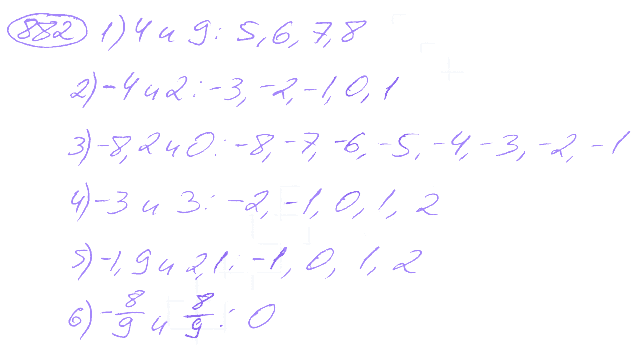 882 1) 4 и 9: 5, 6, 7, 8
2) -4 и 2: -3, -2, -1, 0, 1
3) -8,2 и 0: -8, -7, -6, -5, -4, -3, -2, -1
4) -3 и 3: -2, -1, 0, 1, 2
5) -1,9 и 2,1: -1, 0, 1, 2
6) -8/9 и 8/9: 0